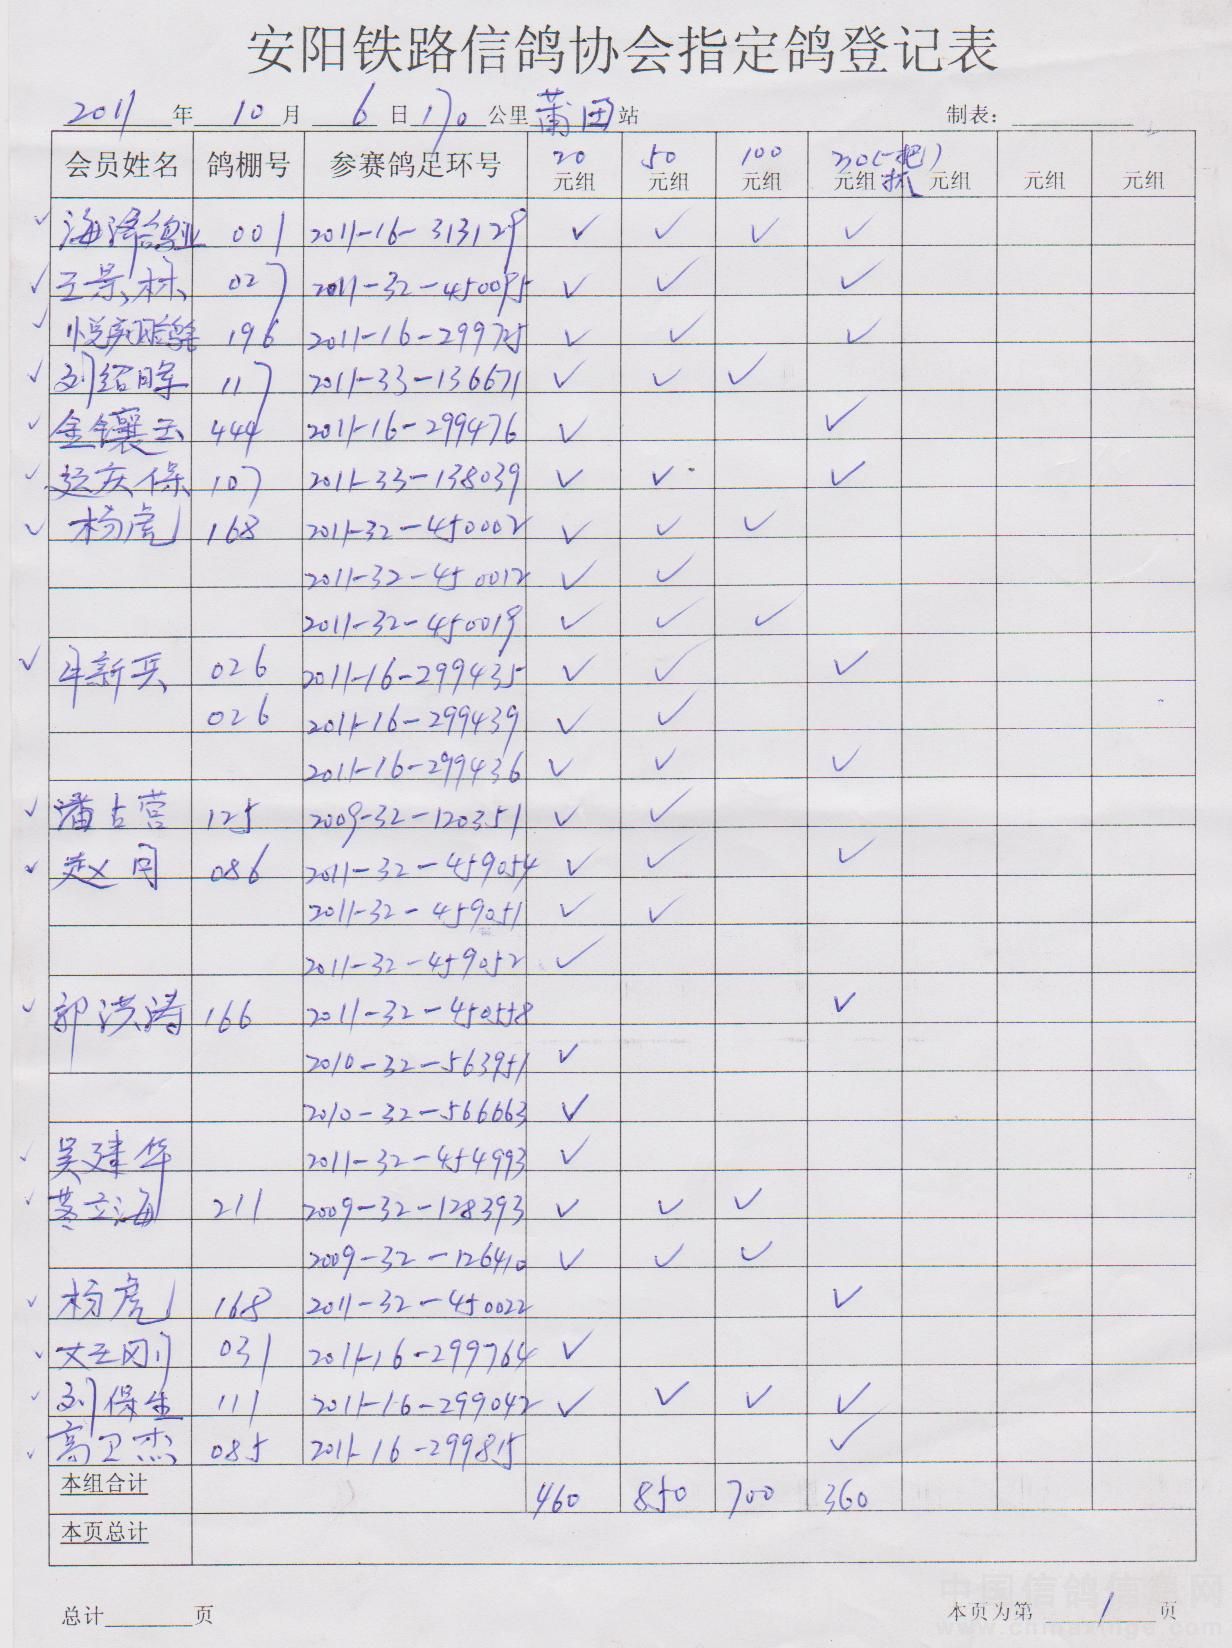 安阳铁路信鸽协会指定鸽登记表
2011年 10月 6日 170公里 莆田站 制表：
会员姓名 鸽棚号 参赛鸽足环号 20元组 50元组 100元组 20(一把抓)元组 元组 元组 元组
海涛鸽业 001 2011-16-313129 ✓ ✓ ✓ ✓
王景林 027 2011-32-450095 ✓ ✓ ✓
196 2011-16-299725 ✓ ✓ ✓
刘绍晖 117 2011-33-136671 ✓ ✓ ✓
金镶玉 444 2011-16-299476 ✓ ✓
赵庆保 107 2011-33-138039 ✓ ✓ ✓
杨虎 168 2011-32-450002 ✓ ✓ ✓
2011-32-450012 ✓ ✓
2011-32-450019 ✓ ✓ ✓
牛新买 026 2011-16-299435 ✓ ✓ ✓
026 2011-16-299439 ✓ ✓
2011-16-299436 ✓ ✓ ✓
潘占营 125 2009-32-120351 ✓ ✓
赵同 086 2011-32-459054 ✓ ✓ ✓
2011-32-459051 ✓ ✓
2011-32-459052 ✓
郭洪涛 166 2011-32-450558 ✓
2010-32-563951 ✓
2010-32-566663 ✓
吴建华 2011-32-454993 ✓
立海 211 2009-32-128393 ✓ ✓ ✓
2009-32-126410 ✓ ✓ ✓
杨虎 168 2011-32-450022 ✓
文玉刚 031 2011-16-299764 ✓
刘保生 111 2011-16-299042 ✓ ✓ ✓ ✓
高卫杰 085 2011-16-299815 ✓
本组合计 460 850 700 360
本页总计
总计 页 本页为第 1 页
中国信鸽信息网
www.chinaxinge.com